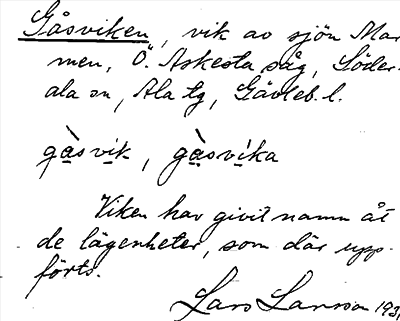 Gåsviken, vik av sjön Mar-
men, Ö. Askesta såg, Söder-
ala sn, Ala tg, Gävleb. l.
gàsvik, gàsvika
Viken har givit namn åt
de lägenheter, som där upp-
förts.
Lars Larsson 193